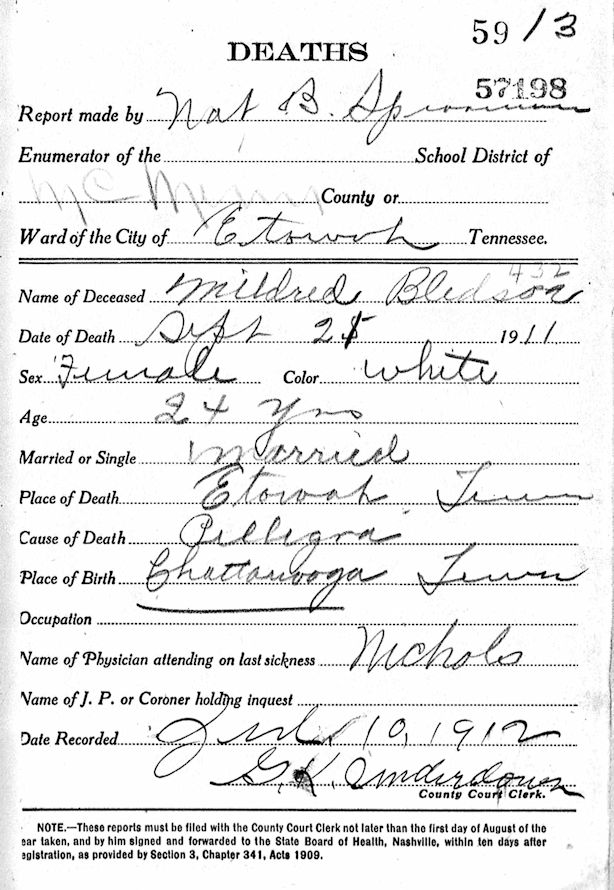 59 / 3
DEATHS
57198
Report made by Nat B.
Enumerator of the School District of
McMinn County or
Ward of the City of Etowah Tennessee.
432
Name of Deceased Mildred Bledsoe
Date of Death Sept 25 1911
Sex Female Color White
Age 24 Yrs
Married or Single Married
Place of Death Etowah Tenn
Cause of Death Pellegra
Place of Birth Chattanooga Tenn
Occupation
Name of Physician attending on last sickness Nichols
Name of J. P. or Coroner holding inquest
Date Recorded July 10, 1912
G. K. Underdown
County Court Clerk.
NOTE.—These reports must be filed with the County Court Clerk not later than the first day of August of the
ear taken, and by him signed and forwarded to the State Board of Health, Nashville, within ten days after
egistration, as provided by Section 3, Chapter 341, Acts 1909.